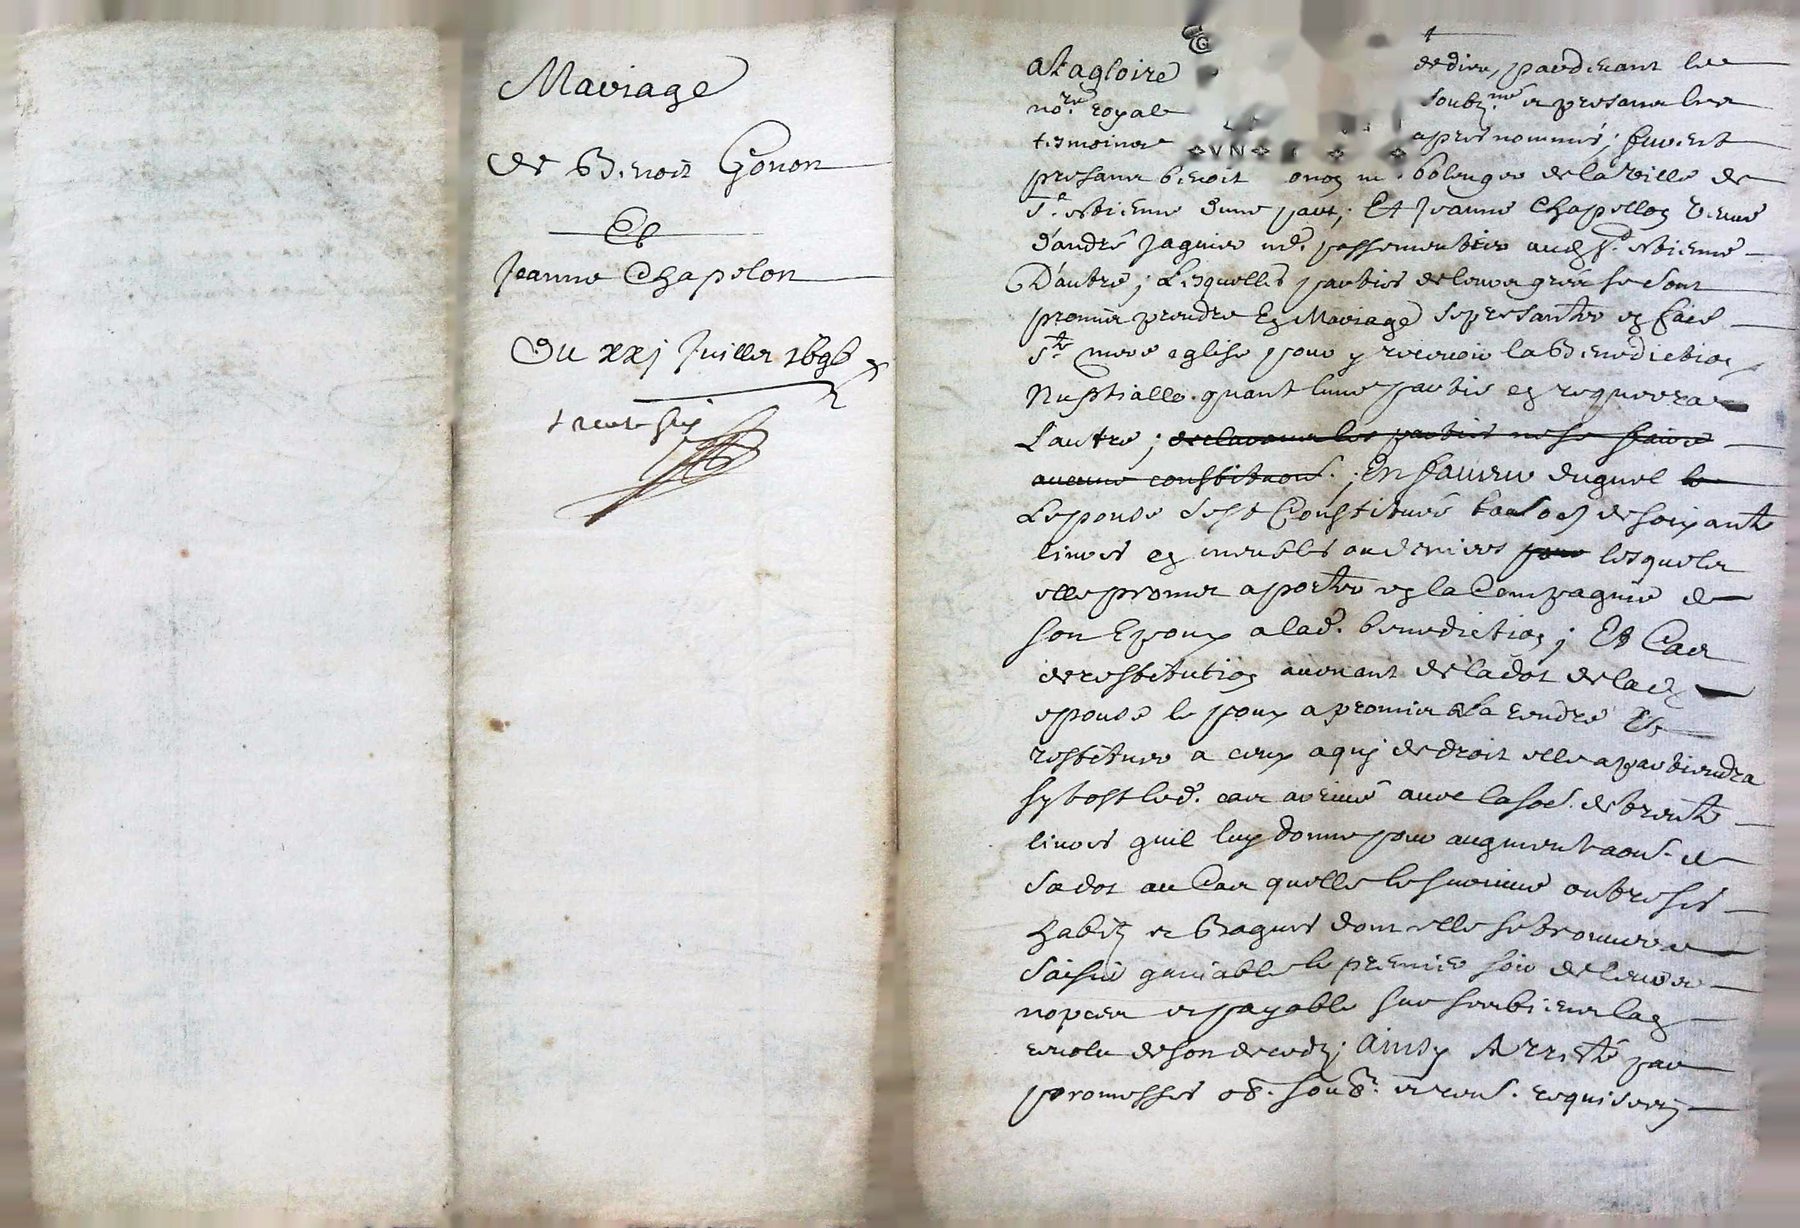 Mariage
de Benoit Gonon
Et
Jeanne Chapelon
Du xxj Juillet 1696
trente six
a La gloire de dieu, pardevant les
no.re royal soub.né et presans les
tesmoins VN apres nommés; furent
presans benoit onon m. bolenger de la ville de
S.t Estienne d'une part; Et Jeanne Chapellon veuve
d'andré Jaquier m.d passementier aud. S.t Estienne
D'autre; Lesquelles parties de leurs grés se sont
promis prendre En Mariage se presanter en face
S.te mere eglise pour y recevoir la Benediction
Nuptialle quant l'une partie en requerra
L'autre; declarant les parties ne se faire
aucune constituon. ; En faveur duquel le
L'epouse s'est Constitué la so.e de soixante
livres en meubles ou deniers pour lesquels
elle promet aporter en la Compagnie de
son Epoux a lad. benediction; Et Cas
de restitution avenant de la dot de lad.
epouse le poux a promis de la rendre Et
restituer a ceux a quj de droit elle apartiendra
sytost led. cas arivé avec la so.e de trente
livres qu'il luy donne pour augmentaon. de
sa dot au Cas qu'elle le survive outre ses
habitz et Bagues dont elle se trouvera
saisie ganiable le premier soir de leurs
nopces et payable sur ses biens l'an
revolu de son decedz; Ainsy Arresté par
promesses ob. soub. et renon. requises en